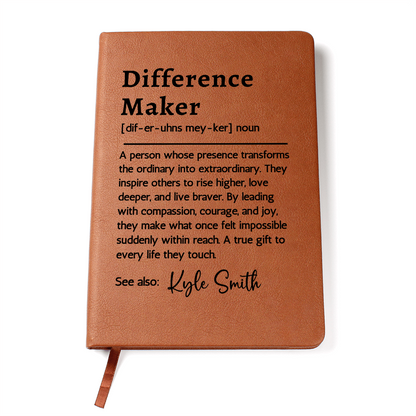 Difference
Maker
[dif-er-uhns mey-ker] noun
A person whose presence transforms
the ordinary into extraordinary. They
inspire others to rise higher, love
deeper, and live braver. By leading
with compassion, courage, and joy,
they make what once felt impossible
suddenly within reach. A true gift to
every life they touch.
See also: Kyle Smith